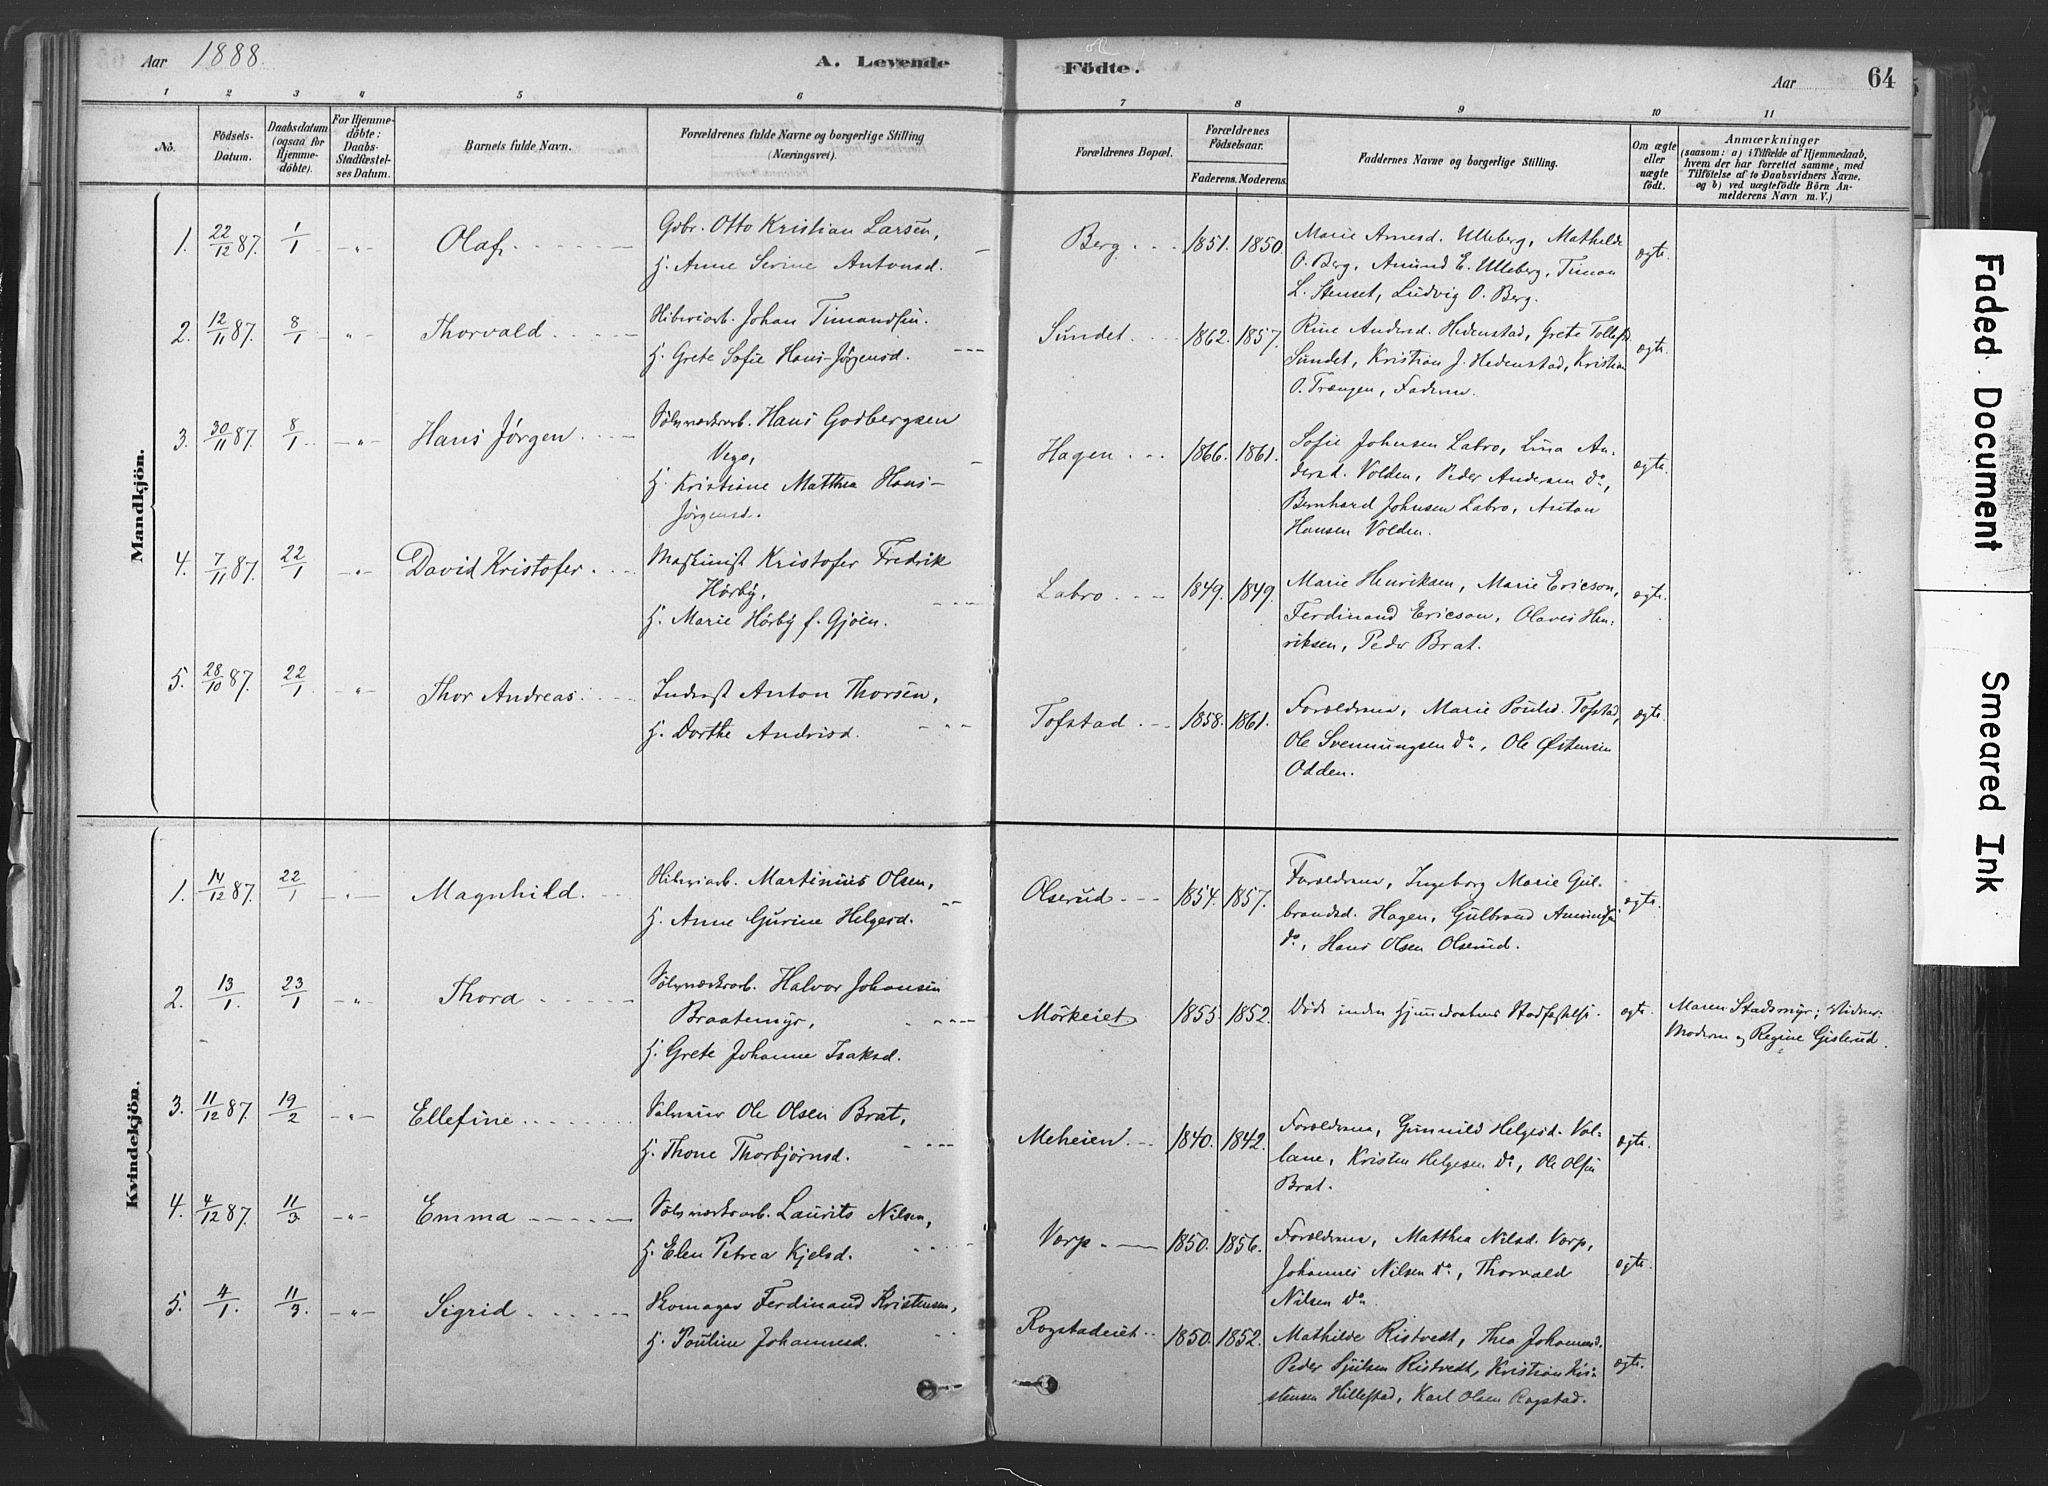 Aar 1888.
A. Levende Födte.
Aar 64
1 2 3 4 5 6 7 8 9 10 11
No.
Födsels-Datum.
Daabsdatum (ogsaa for Hjemme-döbte).
For Hjemme-döbte: Daabs-Stadfæstel-ses Datum.
Barnets fulde Navn.
Forældrenes fulde Navne og borgerlige Stilling
(Næringsvei).
Forældrenes Bopæl.
Forældrenes Födselsaar.
Faderens. Moderens.
Faddernes Navne og borgerlige Stilling.
Om ægte eller uægte födt.
Anmærkninger
(saasom: a) i Tilfælde af Hjemmedaab,
hvem der har forrettet samme, med
Tilföielse af to Daabsvidners Navne.
og b) ved uægtefödte Börn An-
melderens Navn m. V.)
Mandkjön.
1. 22/12 87. 1/1 -"- Olaf.
Gdbr. Otto Kristian Larsen,
H. Anne Serine Antonsd.
Berg. 1851. 1850.
Marie Arnesd. Ulleberg, Mathilde
O. Berg, Amund E. Ulleberg, Timan
L. Stenset, Ludvig O. Berg.
ægte.
2. 12/11 87. 8/1 -"- Thorvald
Johan Timandsen.
H. Grete Sofie Hans-Jørgensd.
Sundet. 1862. 1857.
Rine Andersd. Hedenstad, Grete Tollefsd.
Sundet, Kristian J. Hedenstad, Kristian
O. Trængen, Faderen.
ægte.
3. 30/11 87. 8/1 -"- Hans Jørgen
Sølvværksarb. Hans Godbergsen
H. Kristiane Matthea Hans-
Jørgensd.
Hagen. 1866. 1861.
Sofie Johnsen Labro, Lina An-
dersd. Volden, Peder Andersen Do.,
Bernhard Johnsen Labro, Anton
Hansen Volden.
ægte.
4. 7/11 87. 22/1 -"- David Kristofer.
Maskinist Kristofer Fredrik
Hørby,
H. Marie Hørby f. Gjøen.
Labro. 1849. 1849.
Marie Henriksen, Marie Ericson,
Ferdinand Ericson, Olaves Hen-
riksen, Peder Brat.
ægte.
5. 28/10 87. 22/1 -"- Thor Andreas.
Inderst Anton Thorsen,
H. Dorthe Andrisd.
Tofstad 1858. 1861.
Forældrene, Marie Poulsd. Tofstad,
Ole Svennungsen Do., Ole Østensen
Odden.
ægte.
Kvindekjön.
1. 14/12 87. 22/1 -"- Magnhild.
Martinius Olsen,
H. Anne Gurine Helgesd.
Olserud 1854. 1857.
Forældrene, Ingeborg Marie Gul-
brandsd. Hagen, Gulbrand Amundsen
Do., Hans Olsen Olserud.
ægte.
2. 13/1. 23/1 -"- Thora
Sølvværksarb. Halvor Johansen
Braatemyr,
H. Grete Johanne Isaksd.
Mörkeiet 1855. 1852.
Døde inden Hjemmedaabens Stadfæstelse.
ægte.
Maren Stadsmyr; Vidner:
Moderen og Regine Gislerud.
3. 11/12 87. 19/2 -"- Ellefine
Ole Olsen Brat,
H. Thone Thorbjørnsd.
Meheien 1840. 1842.
Forældrene, Gunnild Helgesd. Vol-
lane, Kristen Helgesen Do., Ole Olsen
Brat.
ægte.
4. 4/12 87. 11/3 -"- Emma
Sølvværksarb. Laurits Nilsen,
H. Elen Petrea Kjelsd.
Varp. 1850. 1856.
Forældrene, Matthea Nilsd. Varp,
Johannes Nilsen Do., Thorvald
Nilsen Do.
ægte.
5. 4/1. 11/3. -"- Sigrid
Skomager Ferdinand Kristensen,
H. Pouline Johannesd.
Rogstadeiet 1850. 1852.
Mathilde Ristvedt, Thea Johannesd.
Peder Sjulsen Ristvedt, Kristian Kri-
stensen Hillestad, Karl Olsen Rogstad.
ægte.
Faded Document
Smeared Ink